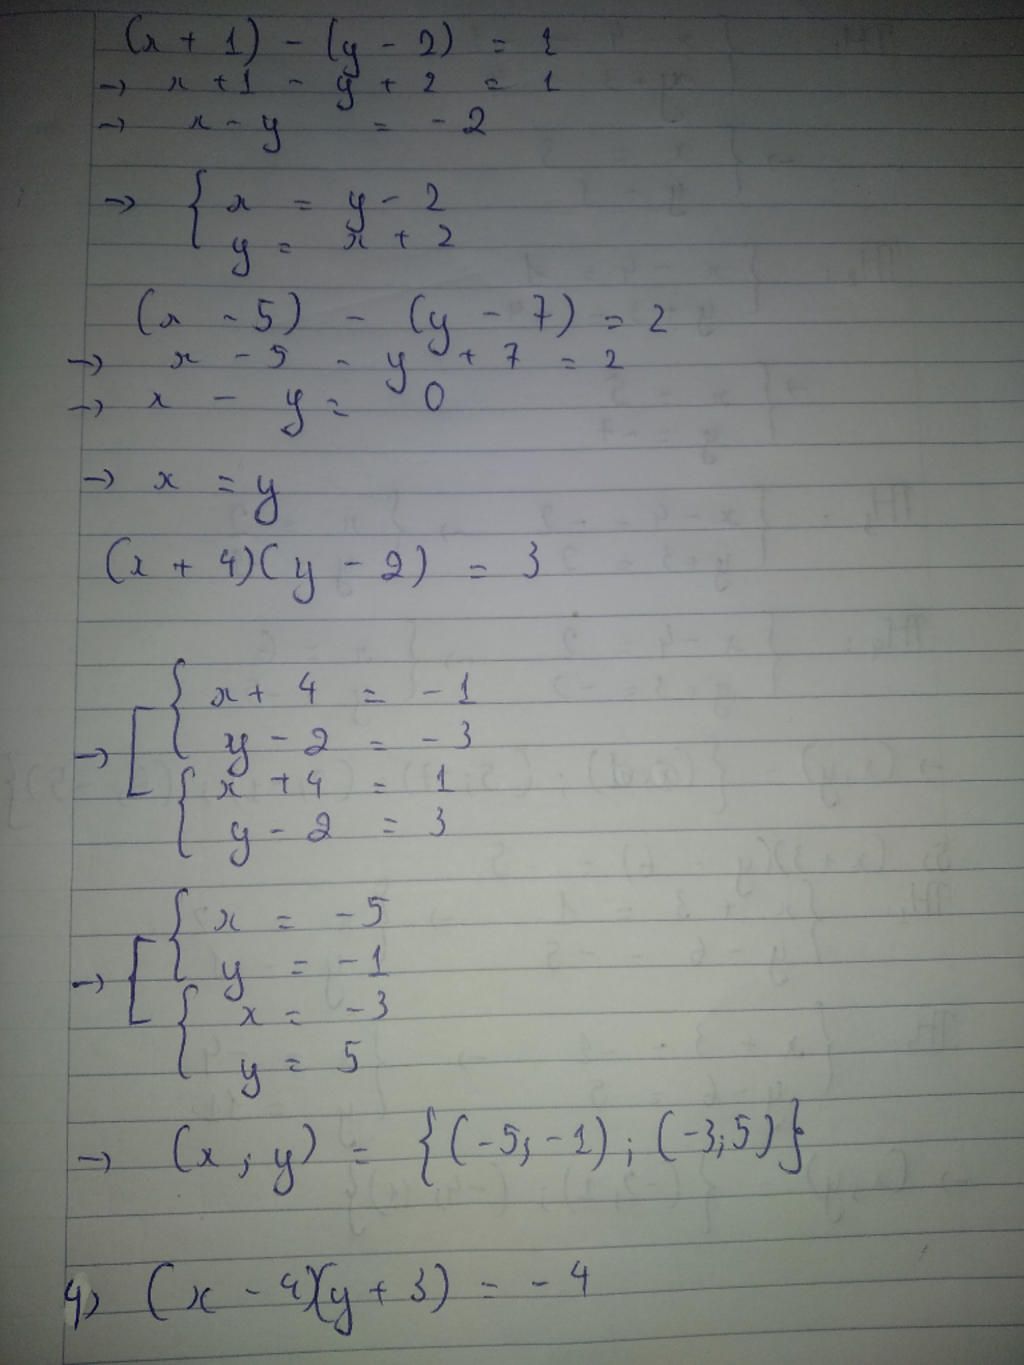 (x + 1) - (y - 2) = 1
→ x + 1 - y + 2 = 1
→ x - y = - 2
→ { x = y - 2
y = x + 2
(x - 5) - (y - 7) = 2
→ x - 5 - y + 7 = 2
→ x - y = 0
→ x = y
(x + 4)(y - 2) = 3
→ [ { x + 4 = - 1
y - 2 = - 3
{ x + 4 = 1
y - 2 = 3
→ [ { x = - 5
y = - 1
{ x = - 3
y = 5
→ (x, y) = {(-5; -1); (-3; 5)}
4) (x - 4)(y + 3) = - 4